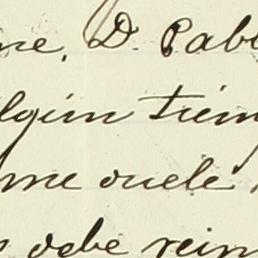 me, D. Pab
lgun tiem
me duele
debe rein